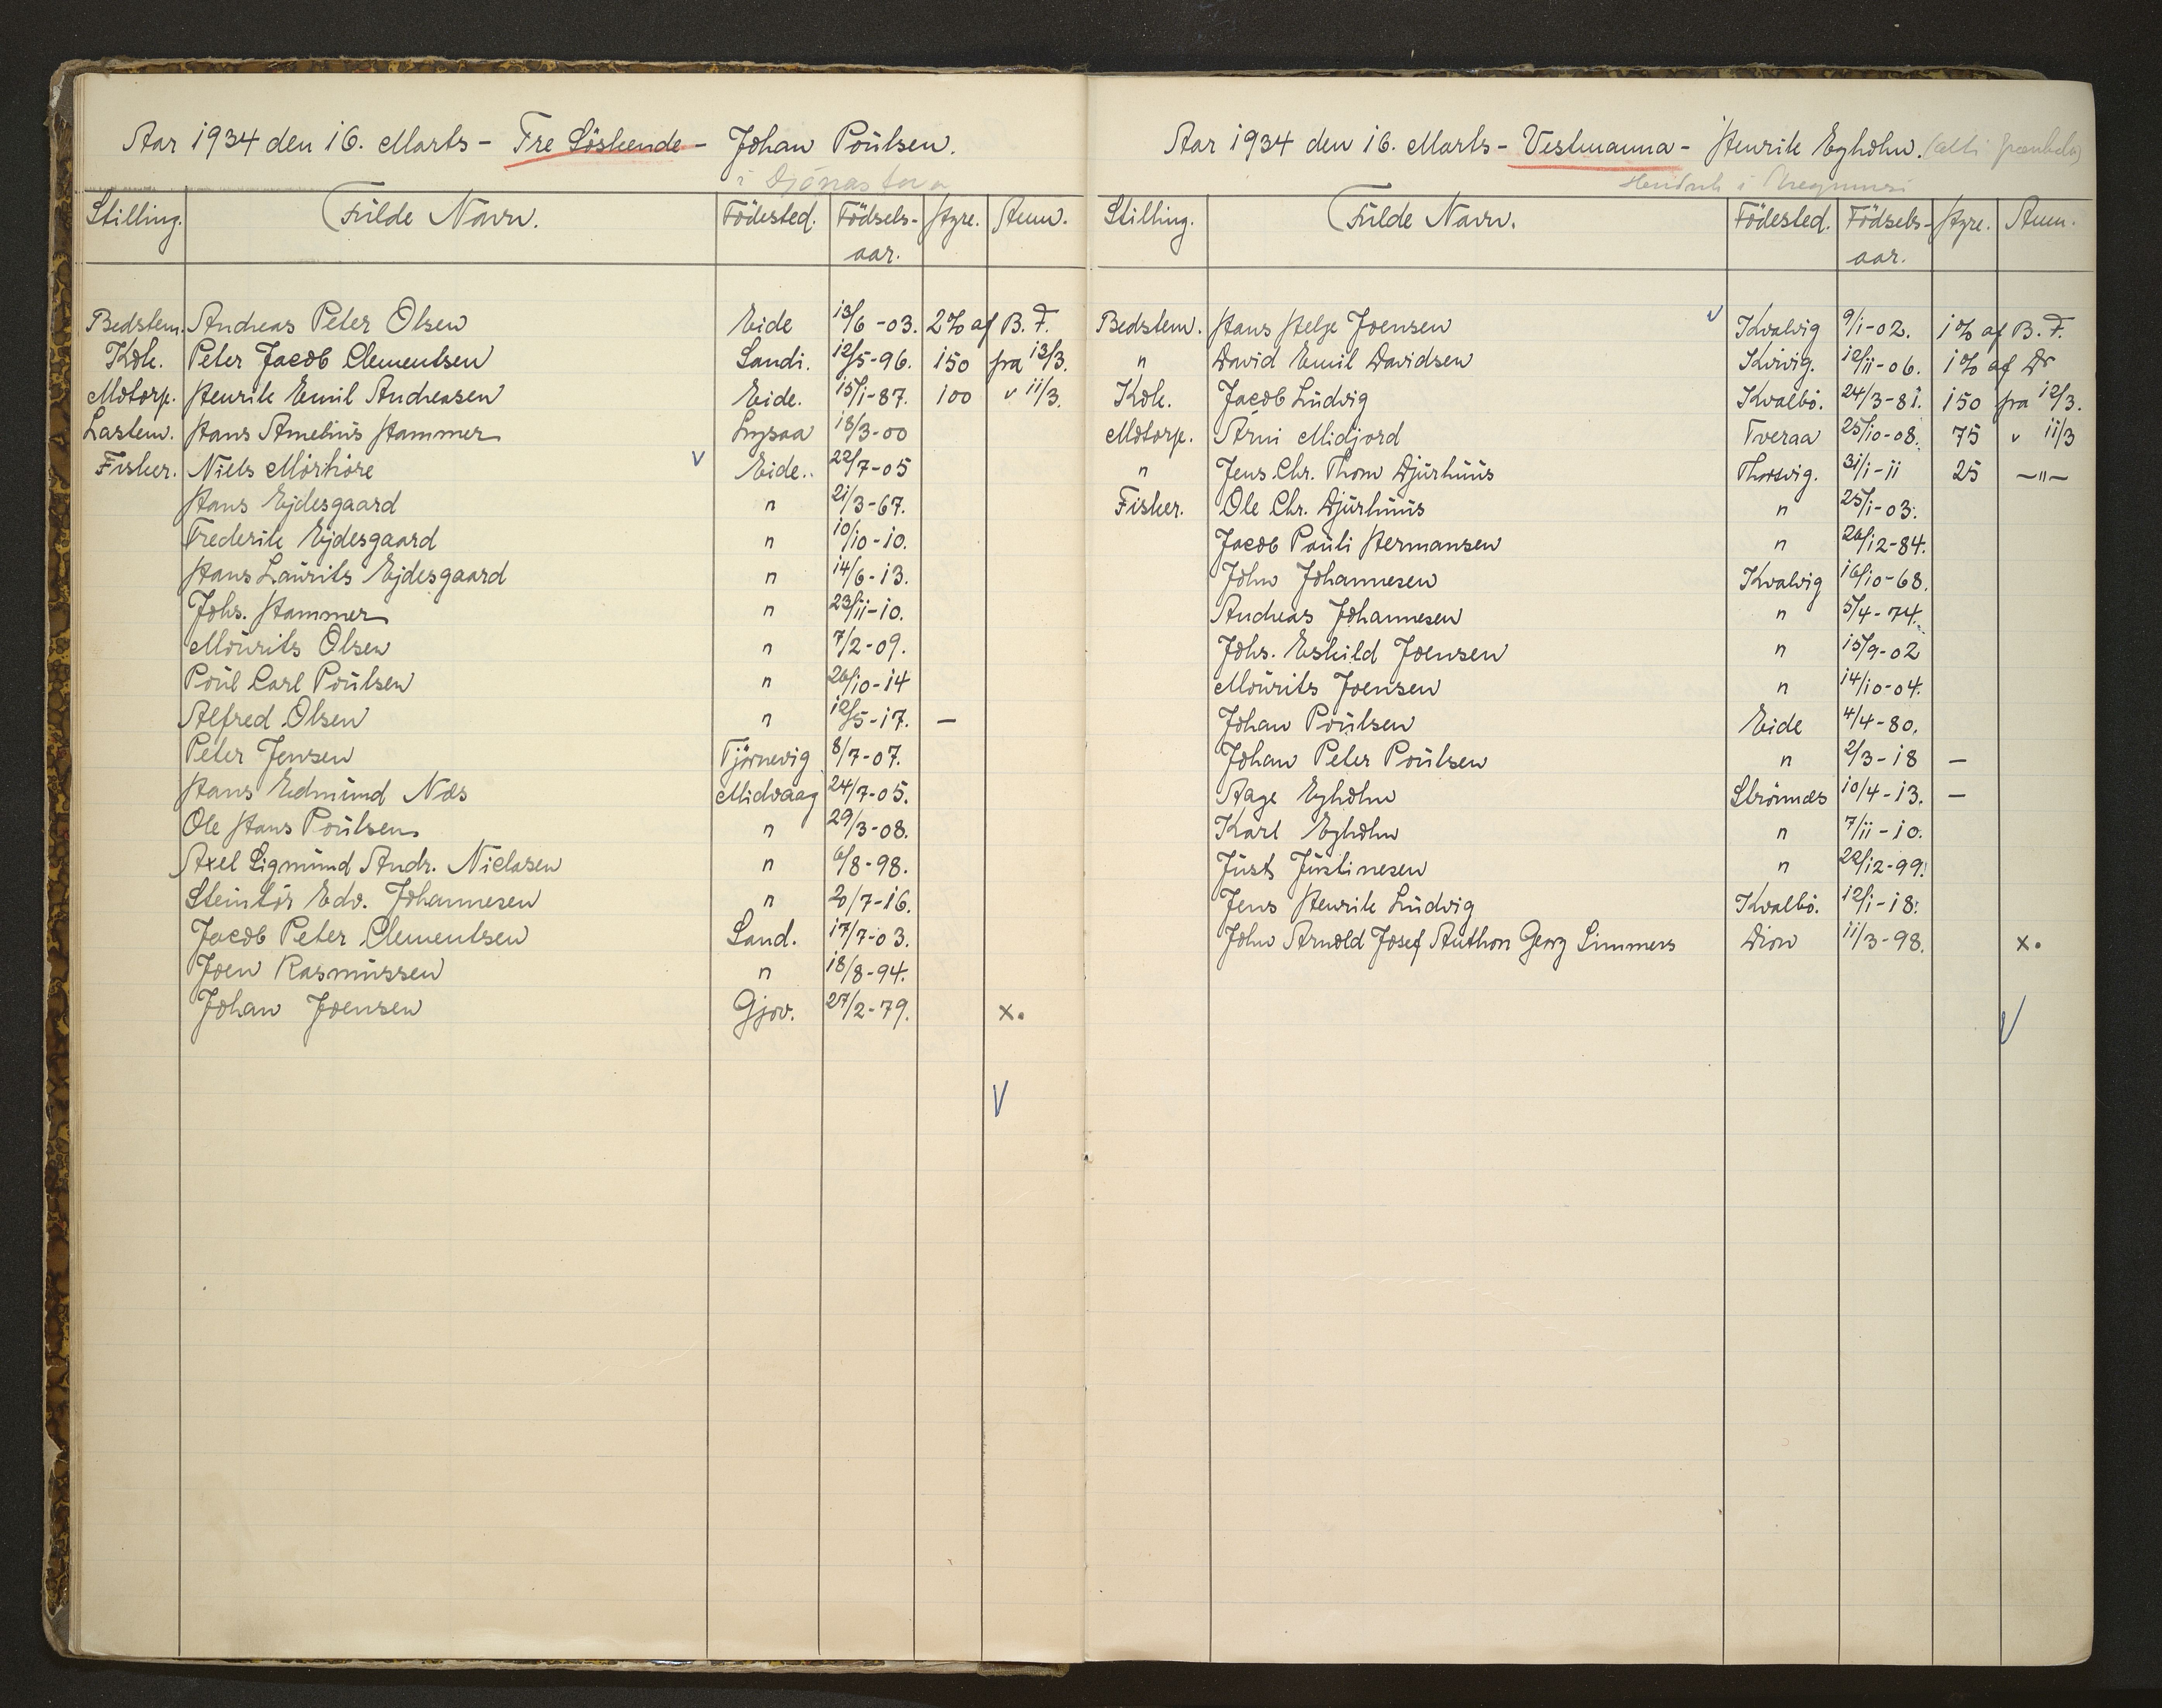 Aar 1934 den 16. Marts - Tre Söskende - Johan Poulsen.
i Djónastova
Stilling. Fulde Navn. Födested. Födsels- Hyre. Anm.
aar.
Bedstem. Andreas Peter Olsen Eide 13/6 -03. 2% af B. F.
Kok. Peter Jacob Clementsen Sandi. 12/5-96. 150 fra 13/3.
Motorp. Henrik Emil Andreasen Eide. 15/1-87. 100 v 11/3.
Lastem. Hans Amelius Hammer Lysaa 18/3-00
Fisker. Niels Mörköre v Eide.. 22/7-05
Hans Ejdesgaard n 21/3-67.
Frederik Ejdesgaard n 10/10-10.
Hans Laurits Ejdesgaard n 14/6-13.
Johs. Hammer n 23/11-10.
Mourits Olsen n 7/2-09.
Poul Carl Poulsen n 26/10-14
Alfred Olsen n 12/5-17. -
Peter Jensen Tjörnevig 8/7-07.
Hans Edmund Næs Midvaag 24/7-05.
Ole Hans Poulsen n 29/3-08.
Axel Sigmund Andr. Niclasen n 6/8-98.
Steintór Edv. Johannesen n 20/7-16.
Jacob Peter Clementsen Sand. 17/7-03.
Joen Rasmussen n 18/8-94.
Johan Joensen Gjov. 27/2-79. x.
V
Aar 1934 den 16. Marts - Vestmanna - Henrik Eyholm.
Stilling. Fulde Navn. Födested. Födsels- Hyre. Anm.
aar.
Bedstem. Hans Helge Joensen v Kvalvig 9/1-02. 1% af B. F.
n David Emil Davidsen Kvivig. 12/11-06. 1% af Do
Kok. Jacob Ludvig Kvalbö. 24/3-81. 150 fra 12/3.
Motorp. Árni Midjord Tveraa 25/10-08. 75 v 11/3
n Jens Chr. Thom Djurhuus Thorsvig. 31/1-11 25 -"-
Fisker. Ole Chr. Djurhuus n 25/1-03.
Jacob Pauli Hermansen n 26/12-84.
John Johannesen Kvalvig 16/10-68.
Andreas Johannesen n 5/4-74.
Johs. Eskild Joensen n 15/9-02
Mourits Joensen n 14/10-04.
Johan Poulsen Eide 4/4-80.
Johan Peter Poulsen n 2/3-18 -
Aage Eyholm Strömnæs 10/4-13. -
Karl Eyholm n 7/11-10.
Just Justinesen n 22/12-99.
Jens Henrik Ludvig Kvalbö. 12/1-18.
John Arnold Josef Anthon Georg Simmers Dion 11/3-98. x.
V